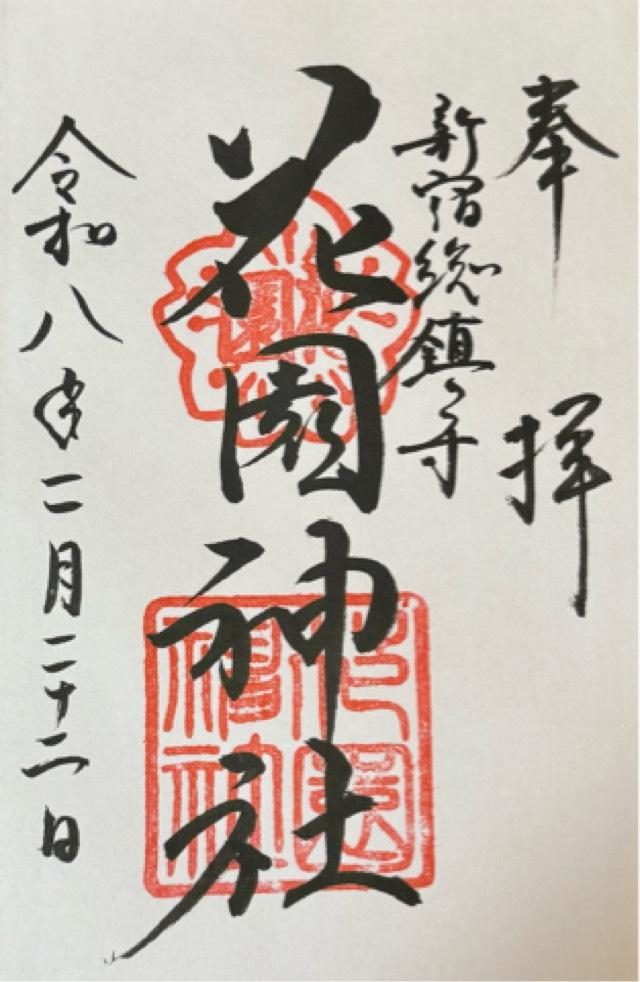 奉拝
新宿総鎮守
花園神社
花園神社
令和八年二月二十二日